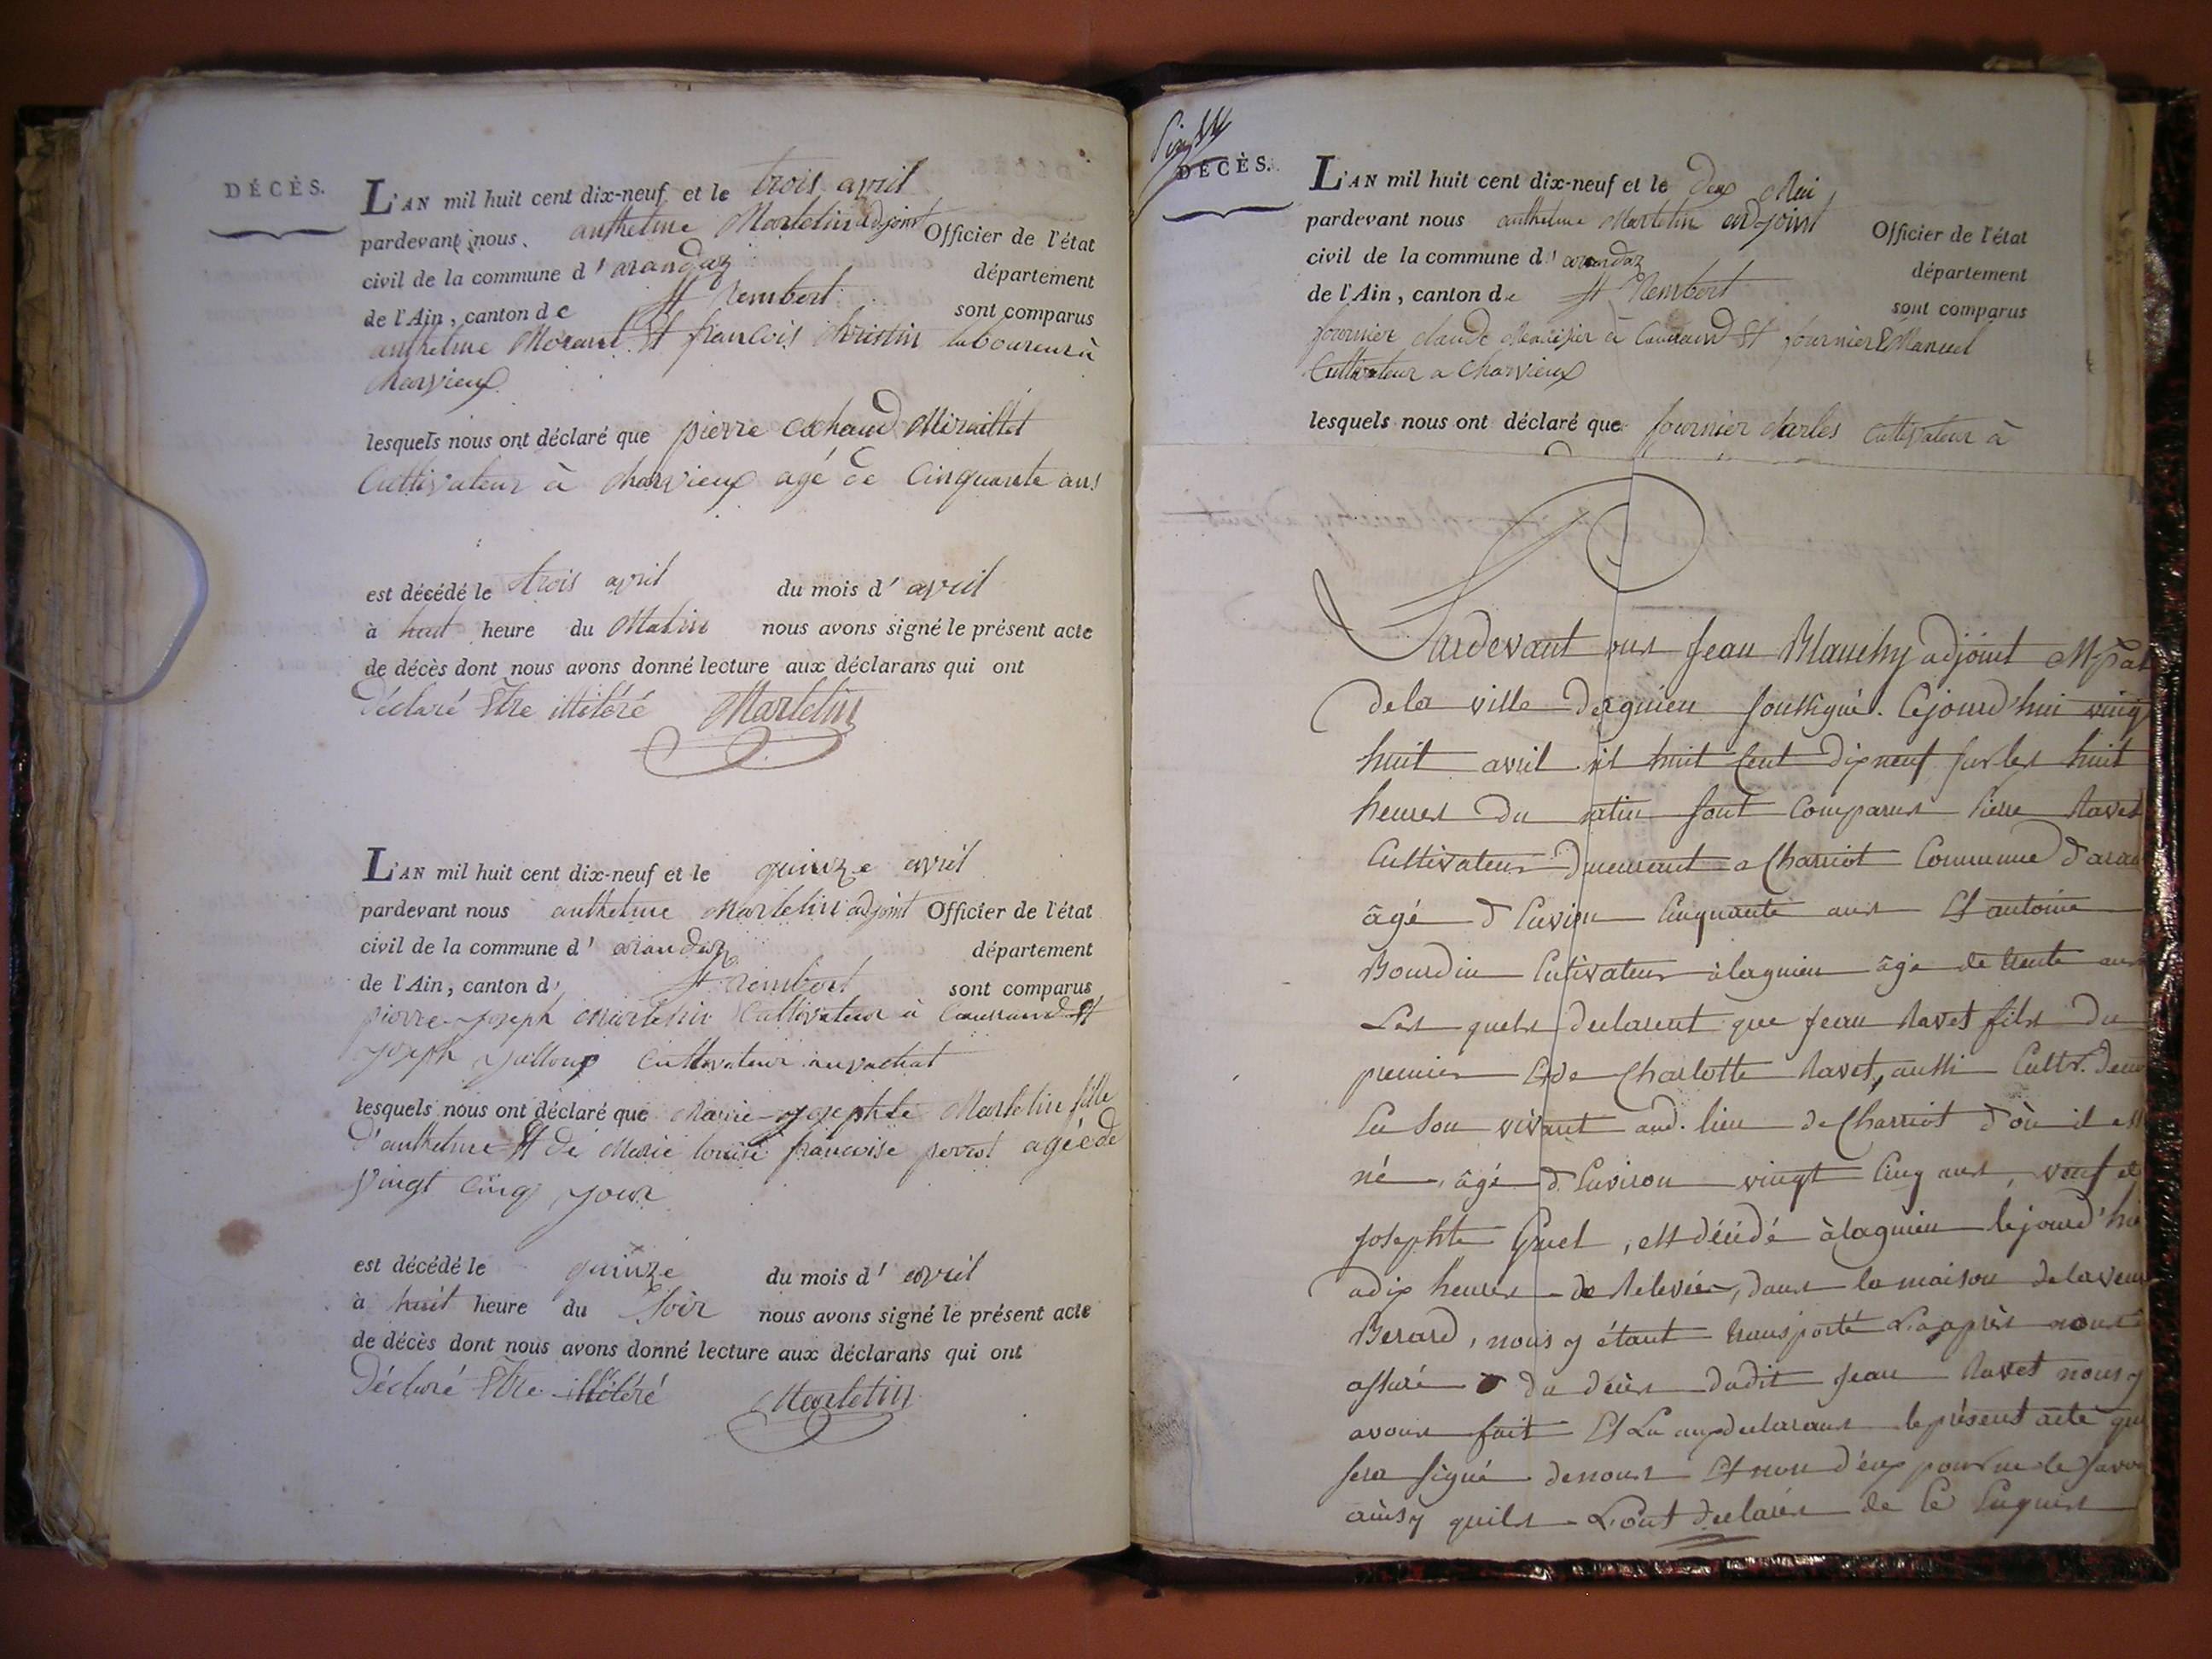 DÉCÈS.
L'AN mil huit cent dix-neuf et le trois avril
pardevant nous anthelme Martelin adjoint Officier de l'état
civil de la commune d'arandaz département
de l'Ain, canton de St Rembert sont comparus
anthelme Morand Et francois christin laboureur à
charvieux
lesquels nous ont déclaré que pierre Miraillet
Cultivateur à charvieux agé de Cinquante ans
est décédé le trois avril du mois d'avril
à huit heure du Matin nous avons signé le présent acte
de décès dont nous avons donné lecture aux déclarans qui ont
déclaré Etre illitéré Martelin
L'AN mil huit cent dix-neuf et le quinze avril
pardevant nous anthelme Martelin adjoint Officier de l'état
civil de la commune d'arandaz département
de l'Ain, canton d St rembert sont comparus
pierre-joseph Martelin Cultivateur à Et
joseph Cultivateur
lesquels nous ont déclaré que Marie-josephte Martelin fille
d'anthelme Et de Marie louise francoise perrot agée de
vingt cinq jour
est décédé le quinze du mois d'avril
à huit heure du Soir nous avons signé le présent acte
de décès dont nous avons donné lecture aux déclarans qui ont
Déclaré Etre illitéré Martelin
DÉCÈS.
L'AN mil huit cent dix-neuf et le deux Mai
pardevant nous anthelme Martelin adjoint Officier de l'état
civil de la commune d'arandaz département
de l'Ain, canton de St Rembert sont comparus
fournier claude à Et fournier EManuel
Cultivateur a Charvieux
lesquels nous ont déclaré que fournier charles Cultivateur à
Pardevant ous Jean Blanchy adjoint
de la ville de lagnieu soussigné. Cejourd'hui ving
huit avril il huit Cent dixneuf sur les huit
heures du atin sont Comparus Pierre Ravet
Cultivateur demeurant a Charriot Commune d'aran
âgé d'Environ Cinquante ans Et antoine
Bourdin Cultivateur à lagnieu âgé de trente ans
Les quels declarent que Jean Ravet fils du
premier Et de Charlotte Ravet, aussi Cultr. deme
En son vivant aud. lieu de Charriot d'où il est
né, âgé d'Environ vingt Cinq ans, veuf de
Josephte, est décédé à lagnieu Cejourd'hui
a dix heures de Relevée, dans la maison de la veuve
Berard, nous y étant transporté Et après nous
assuré du décès dudit Jean Ravet nous y
avons fait Et Lu aux declarans le présent acte qui
sera signé de nous Et non d'eux pour ne le savoir
ainsy quils L'ont declaré de Ce Enquis